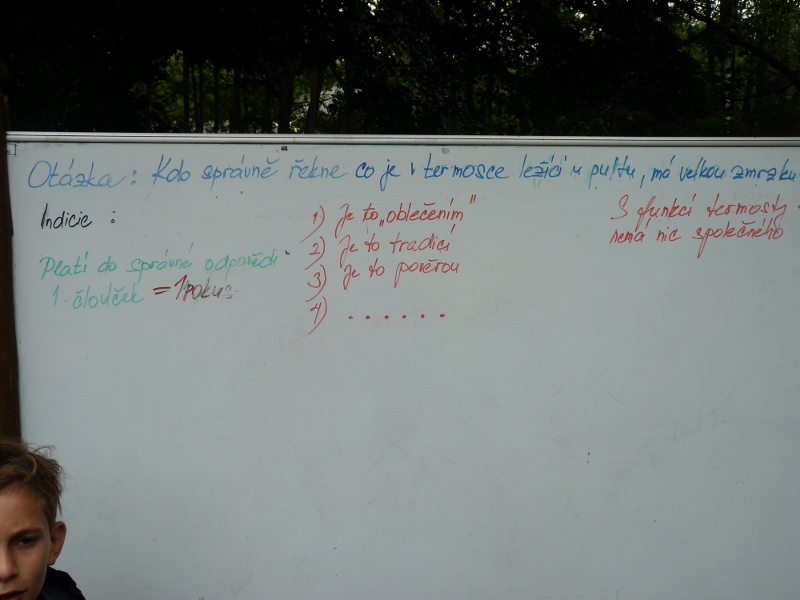 Otázka: Kdo správně řekne co je v termosce ležící u pultu, má velkou zmrzku
Indicie :
1) Je to „oblečením"
2) Je to tradicí
3) Je to pověrou
4) . . . . . .
S funkcí termosty
nemá nic společného
Platí do správné odpovědi
1. človíček = 1 pokus